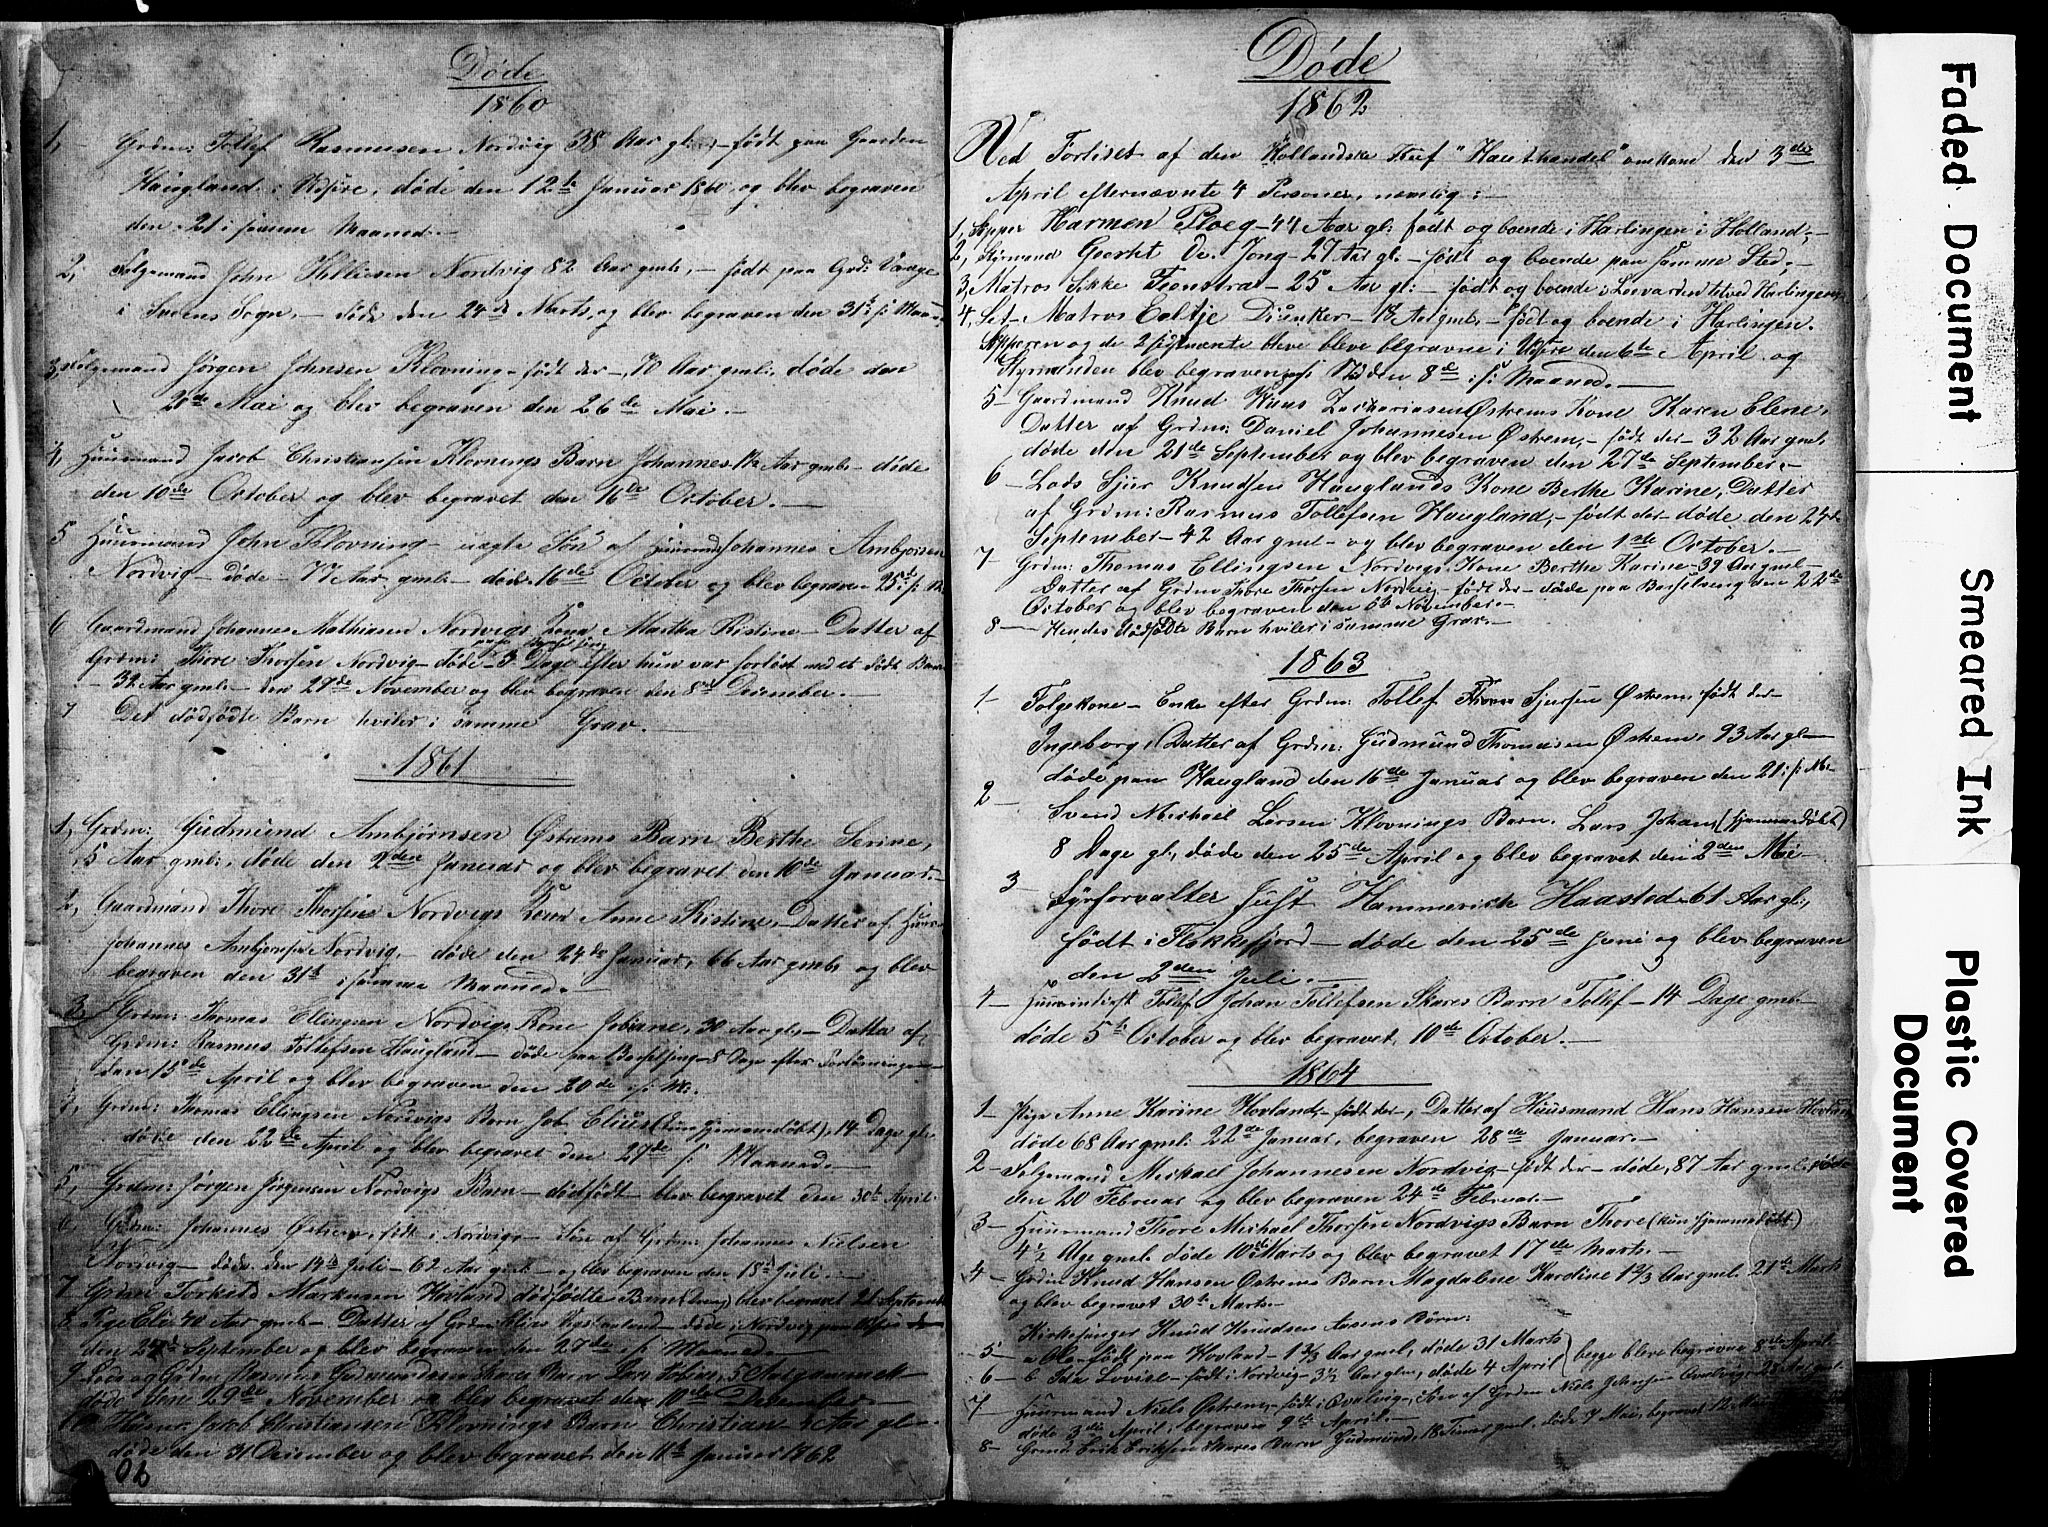 Døde
1860
1, Grdm: Tollef Rasmussen Nordvig 38 Aar gl:, – født paa Gaarden
Haugland i Udsire, døde den 12te Januar 1860 og blev begraven
den 21 i samme Maaned. –
2, Folgemand John Nordvig 82 Aar gml:, – født paa Grd:
i Sogn, – døde den 24de Marts, og blev begraven den 31te s: Maaned
3, Folgemand Jørgen Johnsen Klovning – født der –, 70 Aar gml: døde den
Mai og blev begraven den 26de Mai. –
4, Huusmand Jacob Christiansen Klovnings Barn Johannes Aar gml: – døde
den 10de October og blev begravet den 16de October. –
5 Huusmand John Klovning – uægte Søn af Johannes Ambjørnsen
Nordvig – døde – 77 Aar gml: – døde 16de October og blev begraven 25de s: M
6 Gaardmand Johannes Mathiasen Nordvigs Kone Martha Kristine – Datter af
Grdm: Thore Thorsen Nordvig – døde – 8 Dage efter hun var forløst med et dødt Barn
– 32 Aar gml: – den 27de November og blev begraven den 8de December. –
7 Det dødfødte Barn hviler i samme Grav. –
1861
1, Grdm: Gudmund Ambjørnsen Østrems Barn Berthe Serine,
5 Aar gml:, døde den 2den Januar og blev begravet den 10de Januar. –
2, Gaardmand Thore Thorsens Nordvigs Kone Anne Kristine, Datter af
Johannes Ambjørnsen Nordvig, – døde den 24de Januar, 66 Aar gml: og blev
begraven den 31te i samme Maaned. –
3, Grdm: Thomas Ellingsen Nordvigs Kone Jobiane, 30 Aar gl:, – Datter af
Grdm: Rasmus Tollefsen Haugland – døde paa Barselseng – 8 Dage efter Forløsningen –
den 15de April og blev begraven den 20de s: M:
4, Grdm: Thomas Ellingsen Nordvigs Barn Job Elius (kun hjemmedøbt), 14 Dage gl:
døde den 22de April og blev begravet den 27de s: Maaned. –
5, Grdm: Jørgen Jørgensen Nordvigs Barn – dødfødt – blev begravet den 30te April.
6 Grdm: Johannes Østrem, født i Nordvig – Søn af Grdm: Johannes Nielsen
Nordvig – døde den 14de Juli – 62 Aar gml: – og blev begraven den 18de Juli. –
7 Grdm Torkild Markusen Hovland dødfødte Barn (Dreng) blev begravet 21 September
8 Pige Eli 40 Aar gml – Datter af Grdm – døde i Nordvig
den 24de September og blev begraven den 27de s: Maaned –
9 Lods og Grdm Rasmus Gudmundsen Skares Barn Lars Tobias, 5 Aar gammelt
døde den 29de November og blev begravet den 10de December –
10 Jacob Christiansen Klovnings Barn Christian Aar gl: –
døde den 31 December og blev begravet den 11te Januar 1862
Døde
1862
Ved Forliset af den Hollandske Kuf "Hauthandel" omkom den 3die
April efternævnte 4 Personer, nemlig: –
1, Skipper Harmen Ploeg – 44 Aar gl: født og boende i Harlingen i Holland, –
2, Styrmand Geerht de Jong – 27 Aar gl: – født og boende paa samme Sted, –
3, Matros Sikke Feenstra – 25 Aar gl: – født og boende i Leevarden tetved Harlingen,
4, Let – Matros Eeltje Dünker – 18 Aar gml: – født og boende i Harlingen.
Skipperen og de 2 sidstnævnte bleve begravne i Udsire den 6te April og
Styrmanden blev begraven den 8de i s: Maaned. –
5 – Gaardmand Knud Klaas Zachariasen Østrems Kone Karen Elene,
Datter af Grdm: Daniel Johannesen Østrem, – født der – 32 Aar gml:
døde den 21de September og blev begraven den 27de September. –
6 – Lods Sjur Knudsen Hauglands Kone Berthe Karine, Datter
af Grdm: Rasmus Tollefsen Haugland, – født der – døde den 24de
September – 42 Aar gml: – og blev begraven den 1ste October. –
7 – Grdm: Thomas Ellingsen Nordvigs Kone Berthe Karine – 39 Aar gml –
Datter af Grdm Thore Thorsen Nordvig – født der – døde paa Barselseng den 22de
October og blev begraven den 6te November. –
8 – Hendes dødfødte Barn hviler i samme Grav. –
1863
1 – Folgekone – Enke efter Grdm: Tollef Sjursen Østrem, født der –
Ingeborg, Datter af Grdm: Gudmund Thomasen Østrem, 93 Aar gl –
døde paa Haugland den 16de Januar og blev begraven den 21 i s: M: –
2 – Svend Michael Larsen Klovnings Barn, Lars Johan, (hjemmedøbt)
8 Dage gl:, døde den 25de April og blev begravet den 2den Mai –
3 – Fyrforvalter Just Hammerich Haasted – 61 Aar gl:,
født i Flekkefjord – døde den 25de Juni og blev begraven
den 2den Juli. –
4 – Tollef Johan Tollefsen Skares Barn Tollef – 14 Dage gml: –
døde 5te October og blev begravet 10de October. –
1864
1 – Pige Anne Karine Hovland, – født der –, Datter af Huusmand Hans Hansen Hovland
døde 68 Aar gml: 22de Januar, begraven 28de Januar. –
2 – Folgemand Mickael Johannesen Nordvig – født der – døde, 87 Aar gml: døde
den 20 Februar og blev begraven 24de Februar. –
3 – Huusmand Thore Michael Thorsen Nordvigs Barn Thore (kun hjemmedøbt)
4½ Uge gml: døde 10de Marts og blev begravet 17de Marts. –
4 – Grdm Knud Hansen Østrems Barn Magdalene Karoline 1⅔ Aar gml: 21de Marts
og blev begravet 30te Marts. –
Kirkesanger Knud Knudsen Aasens Børn:
5 – a Ole født paa Hovland – 1⅔ Aar gml, døde 31 Marts
6 – b Ida Lovise – født i Nordvig 3½ Aar glm, døde 4 April } begge bleve begravne 8de April –
7 – Huusmand Niels Østrem, – født i Qvalvig, – Søn af Grdm Niels Johnsen Qvalvig – 25 Aar gml:
døde 3die April, begraven 9de April. –
8 – Grdm: Erik Eriksen Skares Barn Gudmund, 18 Timer gml, døde 7 Mai, begravet 12 Mai
02
Faded Document
Smeared Ink
Plastic Covered
Document